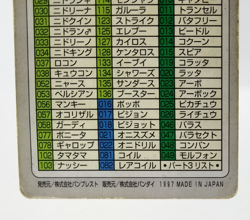 029 ニドラン♀ 114 モンジャラ 011 トランセル
030 ニドリーナ 115 ガルーラ 010 キャタピー
031 ニドクイン 123 ストライク 012 バタフリー
032 ニドラン♂ 125 エレブー 013 ビードル
033 ニドリーノ 127 カイロス 014 コクーン
034 ニドキング 128 ケンタロス 015 スピアー
037 ロコン 133 イーブイ 019 コラッタ
038 キュウコン 134 シャワーズ 020 ラッタ
052 ニャース 135 サンダース 023 アーボ
053 ペルシアン 136 ブースター 024 アーボック
056 マンキー 016 ポッポ 025 ピカチュウ
057 オコリザル 017 ピジョン 026 ライチュウ
058 ガーディ 018 ピジョット 046 パラス
077 ポニータ 021 オニスズメ 047 パラセクト
078 ギャロップ 022 オニドリル 048 コンパン
102 タマタマ 081 コイル 049 モルフォン
103 ナッシー 082 レアコイル •パート3リスト•
発売元/株式会社バンプレスト 販売元/株式会社バンダイ 1997 MADE IN JAPAN